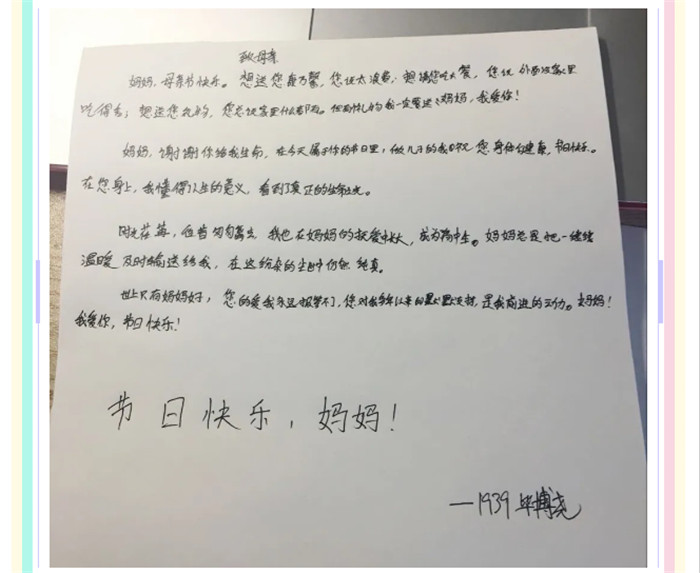 致母亲
妈妈，母亲节快乐。想送您康乃馨，您说太浪费；想请您吃大餐，您说外面没家里
吃得香；想送您礼物，您总说家里什么都有。但有件礼物我一定要送：妈妈，我爱你！
妈妈，谢谢你给我生命，在今天属于你的节日里，做儿子的我祝您身体健康，节日快乐。
在您身上，我懂得了人生的意义，看到了真正的生命之光。
时光荏苒，但当匆匆离去，我也在妈妈的抚爱中长大，成为高中生。妈妈总是把一缕缕
温暖及时输送给我，在这纷杂的尘世中仍留纯真。
世上只有妈妈好，您的爱我永远报答不了，您对我多年以来的点点支持，是我前进的动力。妈妈！
我爱你，节日快乐！
节日快乐，妈妈！
—1939 毕博尧